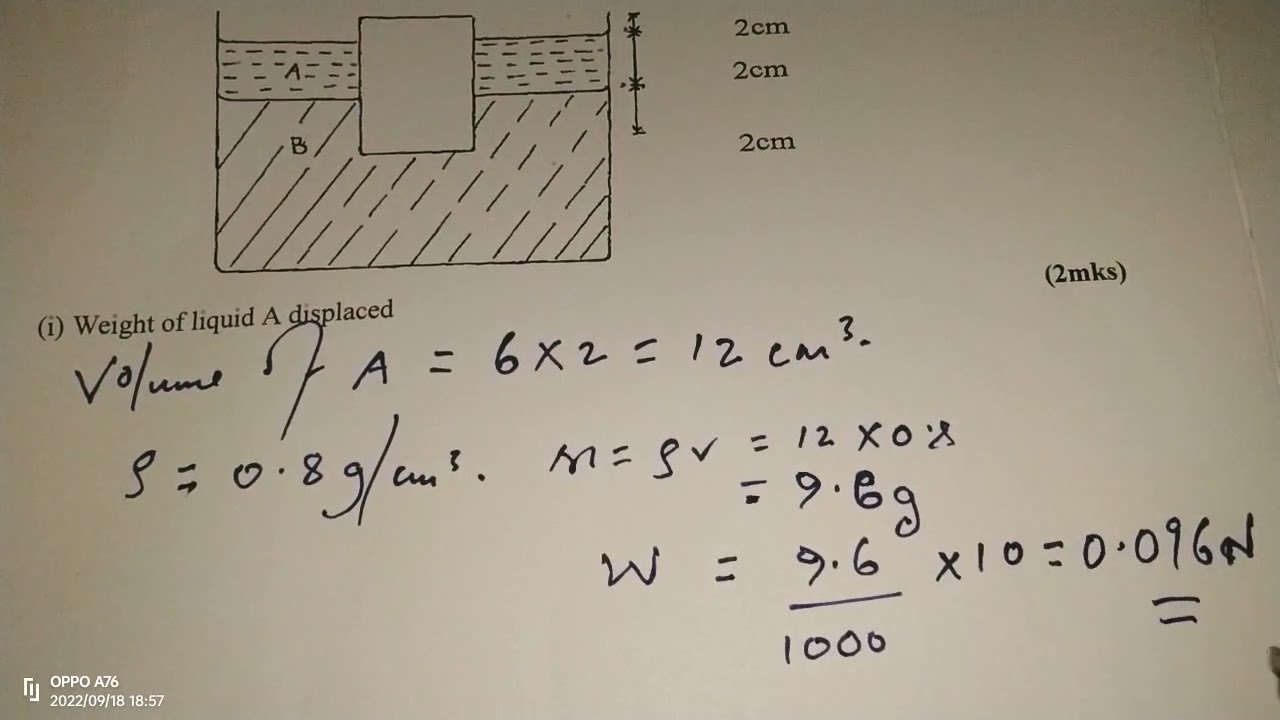 2cm
A
2cm
B
2cm
(2mks)
(i) Weight of liquid A displaced
Volume of A = 6 x 2 = 12 cm³.
ρ = 0.8 g/cm³. m = ρv = 12 x 0.8
= 9.6g
W = 9.6/1000 x 10 = 0.096N
OPPO A76
2022/09/18 18:57